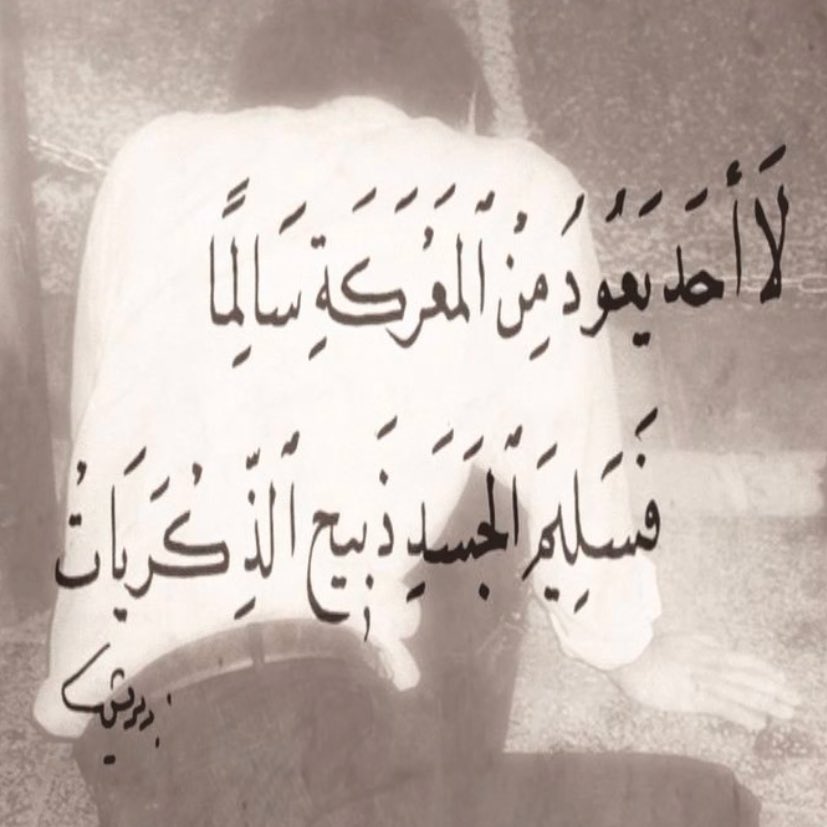 لَا أَحَدَ يَعُودُ مِنُ ٱلمَعَرُكَةِ سَالِمًا
فَسَلِيمَ ٱلجَسَدِ ذَبِيح ٱلذِّكُرَيَاتُ